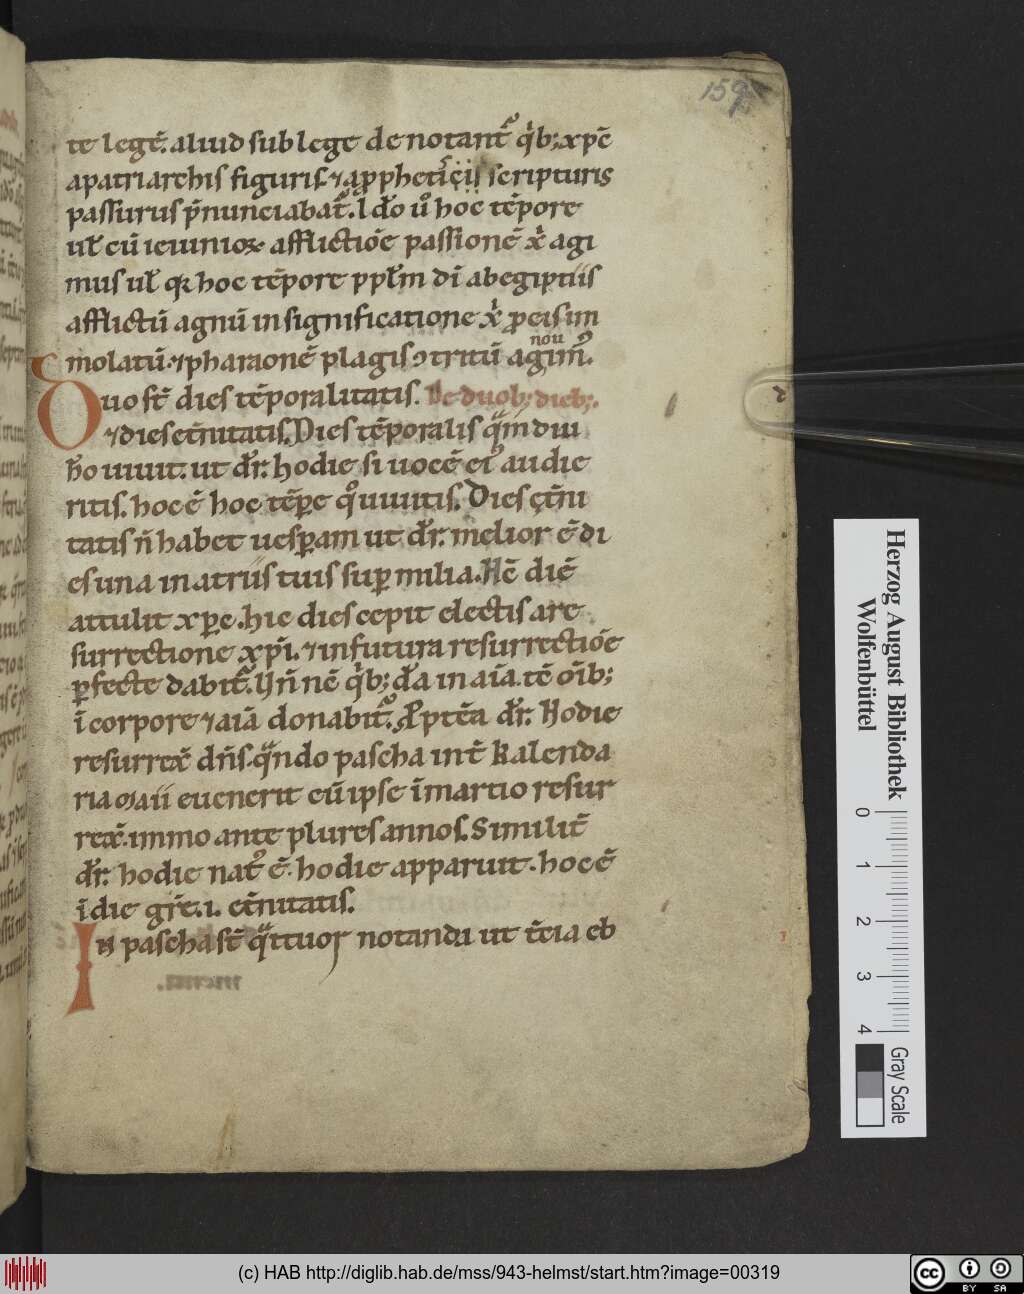 159
te legē. aliud sub lege denotant᷒ q̍b; xpē
a patriarchis figuris ⁊ a ꝓpheticis scripturis
passurus p̄nunciabat᷒. l d̄o ū hoc tēpore
uł cū ieiunioꝝ afflictiōe passionē x̍ agi
mus uł qꝛ hoc tēpore ppłm dī ab egiptiis
afflictū agnū in significatione x̍ ꝓ eis im
molatū. ⁊ pharaonē plagis ꝯtritū agim᷒.
nou
Duo st̄ dies tēporalitatis. De duob; dieb;.
⁊ dies et̄nitatis. Dies tēporalis q̄mdiu
ħo uiuit. ut dr̄. hodie si uocē ei᷒ audie
ritis. hoc ē hoc tēꝑe q̊ uiuitis. Dies ęt̄ni
tatis n̄ habet uesꝑam ut dr̄. melior ē di
es una in atriis tuis suꝑ milia. Hc̄ diē
attulit xpe. hic dies cepit electis a re
surrectione xpī. ⁊ in futura resurrectiōe
ꝑfecte dabit᷒. Hn̄ nē q̍b; da in aīa. tc̄ oīb;
ī corpore ⁊ aīa donabit᷒. Ꝓptēa dr̄. Hodie
resurrex̄ dn̄s. q̄ndo pascha int̄ kalenda
ria maii euenerit cū ipse ī martio resur
rex̄. immo ante plures annos. Similit̄
dr̄. hodie nat᷒ ē. hodie apparuit. hoc ē
ī die gr̄e. i. et̄nitatis.
In pascha st̄ q̄ttuor notanda ut t̄cia eb
Herzog August Bibliothek
Wolfenbüttel
0 1 2 3 4
Gray Scale
(c) HAB http://diglib.hab.de/mss/943-helmst/start.htm?image=00319
cc BY SA